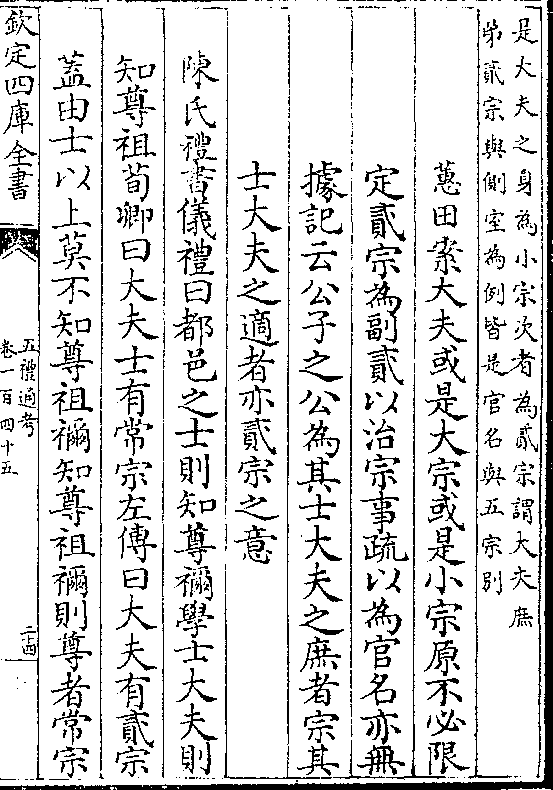 是大夫之身為小宗次者為貳宗謂大夫庶
弟貳宗與側室為例皆是官名與五宗別
蕙田案大夫或是大宗或是小宗原不必限
定貳宗為副貳以治宗事疏以為官名亦無
據記云公子之公為其士大夫之庶者宗其
士大夫之適者亦貳宗之意
陳氏禮書儀禮曰都邑之士則知尊禰學士大夫則
知尊祖荀卿曰大夫士有常宗左傳曰大夫有貳宗
蓋由士以上莫不知尊祖禰知尊祖禰則尊者常宗
欽定四庫全書
五禮通考
卷一百四十五
二十四